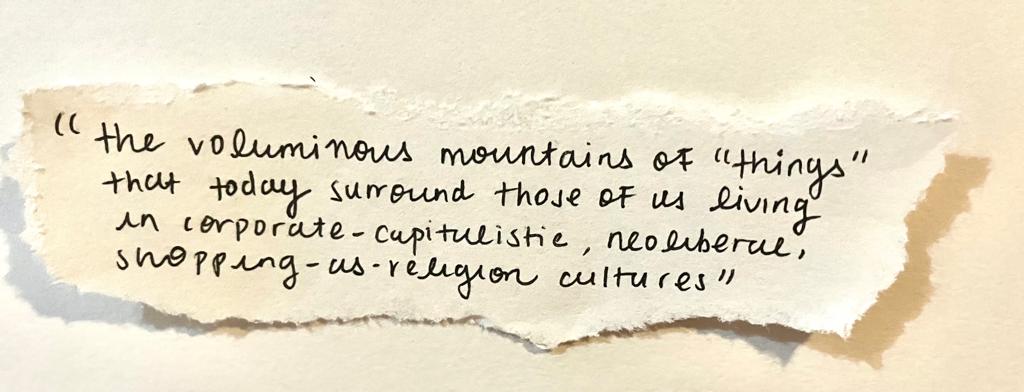 "the voluminous mountains of "things"
that today surround those of us living
in corporate-capitalistic, neoliberal,
shopping-as-religion cultures"